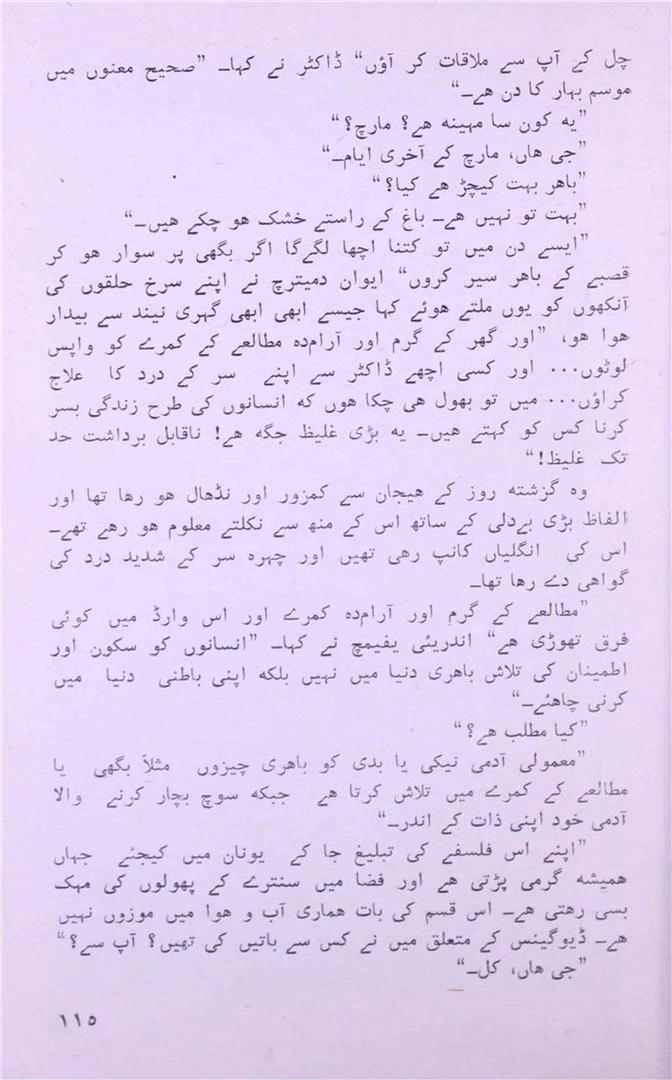 چل کے آپ سے ملاقات کر آؤں“ ڈاکٹر نے کہا۔ ”صحیح معنوں میں
موسم بہار کا دن ھے۔“
”یه کون سا مہینه ھے؟ مارچ؟“
”جی ھاں، مارچ کے آخری ایام۔“
”باھر بہت کیچڑ ھے کیا؟“
”بہت تو نہیں ھے۔ باغ کے راستے خشک ھو چکے ھیں۔“
”ایسے دن میں تو کتنا اچھا لگےگا اگر بگھی پر سوار ھو کر
قصبے کے باھر سیر کروں“ ایوان دمیترچ نے اپنے سرخ حلقوں کی
آنکھوں کو یوں ملتے ھوئے کہا جیسے ابھی ابھی گہری نیند سے بیدار
ھوا ھو، ”اور گھر کے گرم اور آرام‌ده مطالعے کے کمرے کو واپس
لوٹوں... اور کسی اچھے ڈاکٹر سے اپنے سر کے درد کا علاج
کراؤں... میں تو بھول ھی چکا ھوں که انسانوں کی طرح زندگی بسر
کرنا کس کو کہتے ھیں۔ یه بڑی غلیظ جگه ھے! ناقابل برداشت حد
تک غلیظ!“
وه گزشته روز کے ھیجان سے کمزور اور نڈھال ھو رھا تھا اور
الفاظ بڑی بےدلی کے ساتھ اس کے منھ سے نکلتے معلوم ھو رھے تھے۔
اس کی انگلیاں کانپ رھی تھیں اور چہره سر کے شدید درد کی
گواھی دے رھا تھا۔
”مطالعے کے گرم اور آرام‌ده کمرے اور اس وارڈ میں کوئی
فرق تھوڑی ھے“ اندریئی یفیمچ نے کہا۔ ”انسانوں کو سکون اور
اطمینان کی تلاش باھری دنیا میں نہیں بلکه اپنی باطنی دنیا میں
کرنی چاھئے۔“
”کیا مطلب ھے؟“
”معمولی آدمی نیکی یا بدی کو باھری چیزوں مثلاً بگھی یا
مطالعے کے کمرے میں تلاش کرتا ھے جبکه سوچ بچار کرنے والا
آدمی خود اپنی ذات کے اندر۔“
”اپنے اس فلسفے کی تبلیغ جا کے یونان میں کیجئے جہاں
ھمیشه گرمی پڑتی ھے اور فضا میں سنترے کے پھولوں کی مہک
بسی رھتی ھے۔ اس قسم کی بات ھماری آب و ھوا میں موزوں نہیں
ھے۔ ڈیوگینس کے متعلق میں نے کس سے باتیں کی تھیں؟ آپ سے؟“
”جی ھاں، کل۔“
۱۱۵